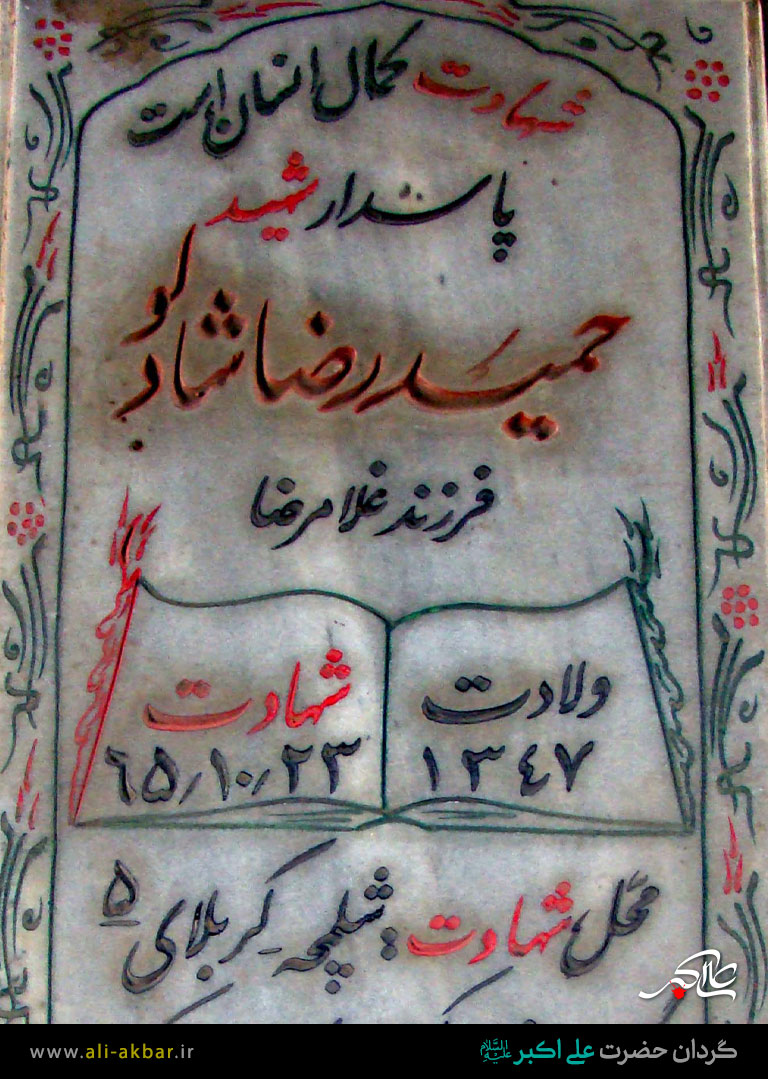 شهادت کمال انسان است
پاسدار شهید
حمید رضا شادلو
فرزند غلامرضا
ولادت
۱۳٤۷
شهادت
٦۵٫۱۰٫۲۳
محل شهادت: شلمچه کربلای ۵
علی اکبر
گردان حضرت علی اکبر علیه السلام
www.ali-akbar.ir